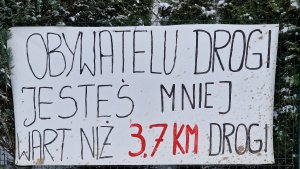 OBYWATELU DROGI
JESTEŚ MNIEJ
WART NIŻ 3,7 KM DROGI